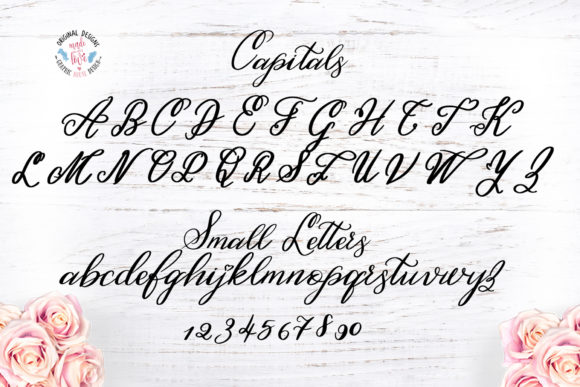 ORIGINAL DESIGNS
made
love
GRAPHIC HOUSE DESIGN
Capitals
A B C D E F G H I J K
L M N O P Q R S T U V W Y Z
Small Letters
abcdefghijklmnopqrstuvwyz
1234567890